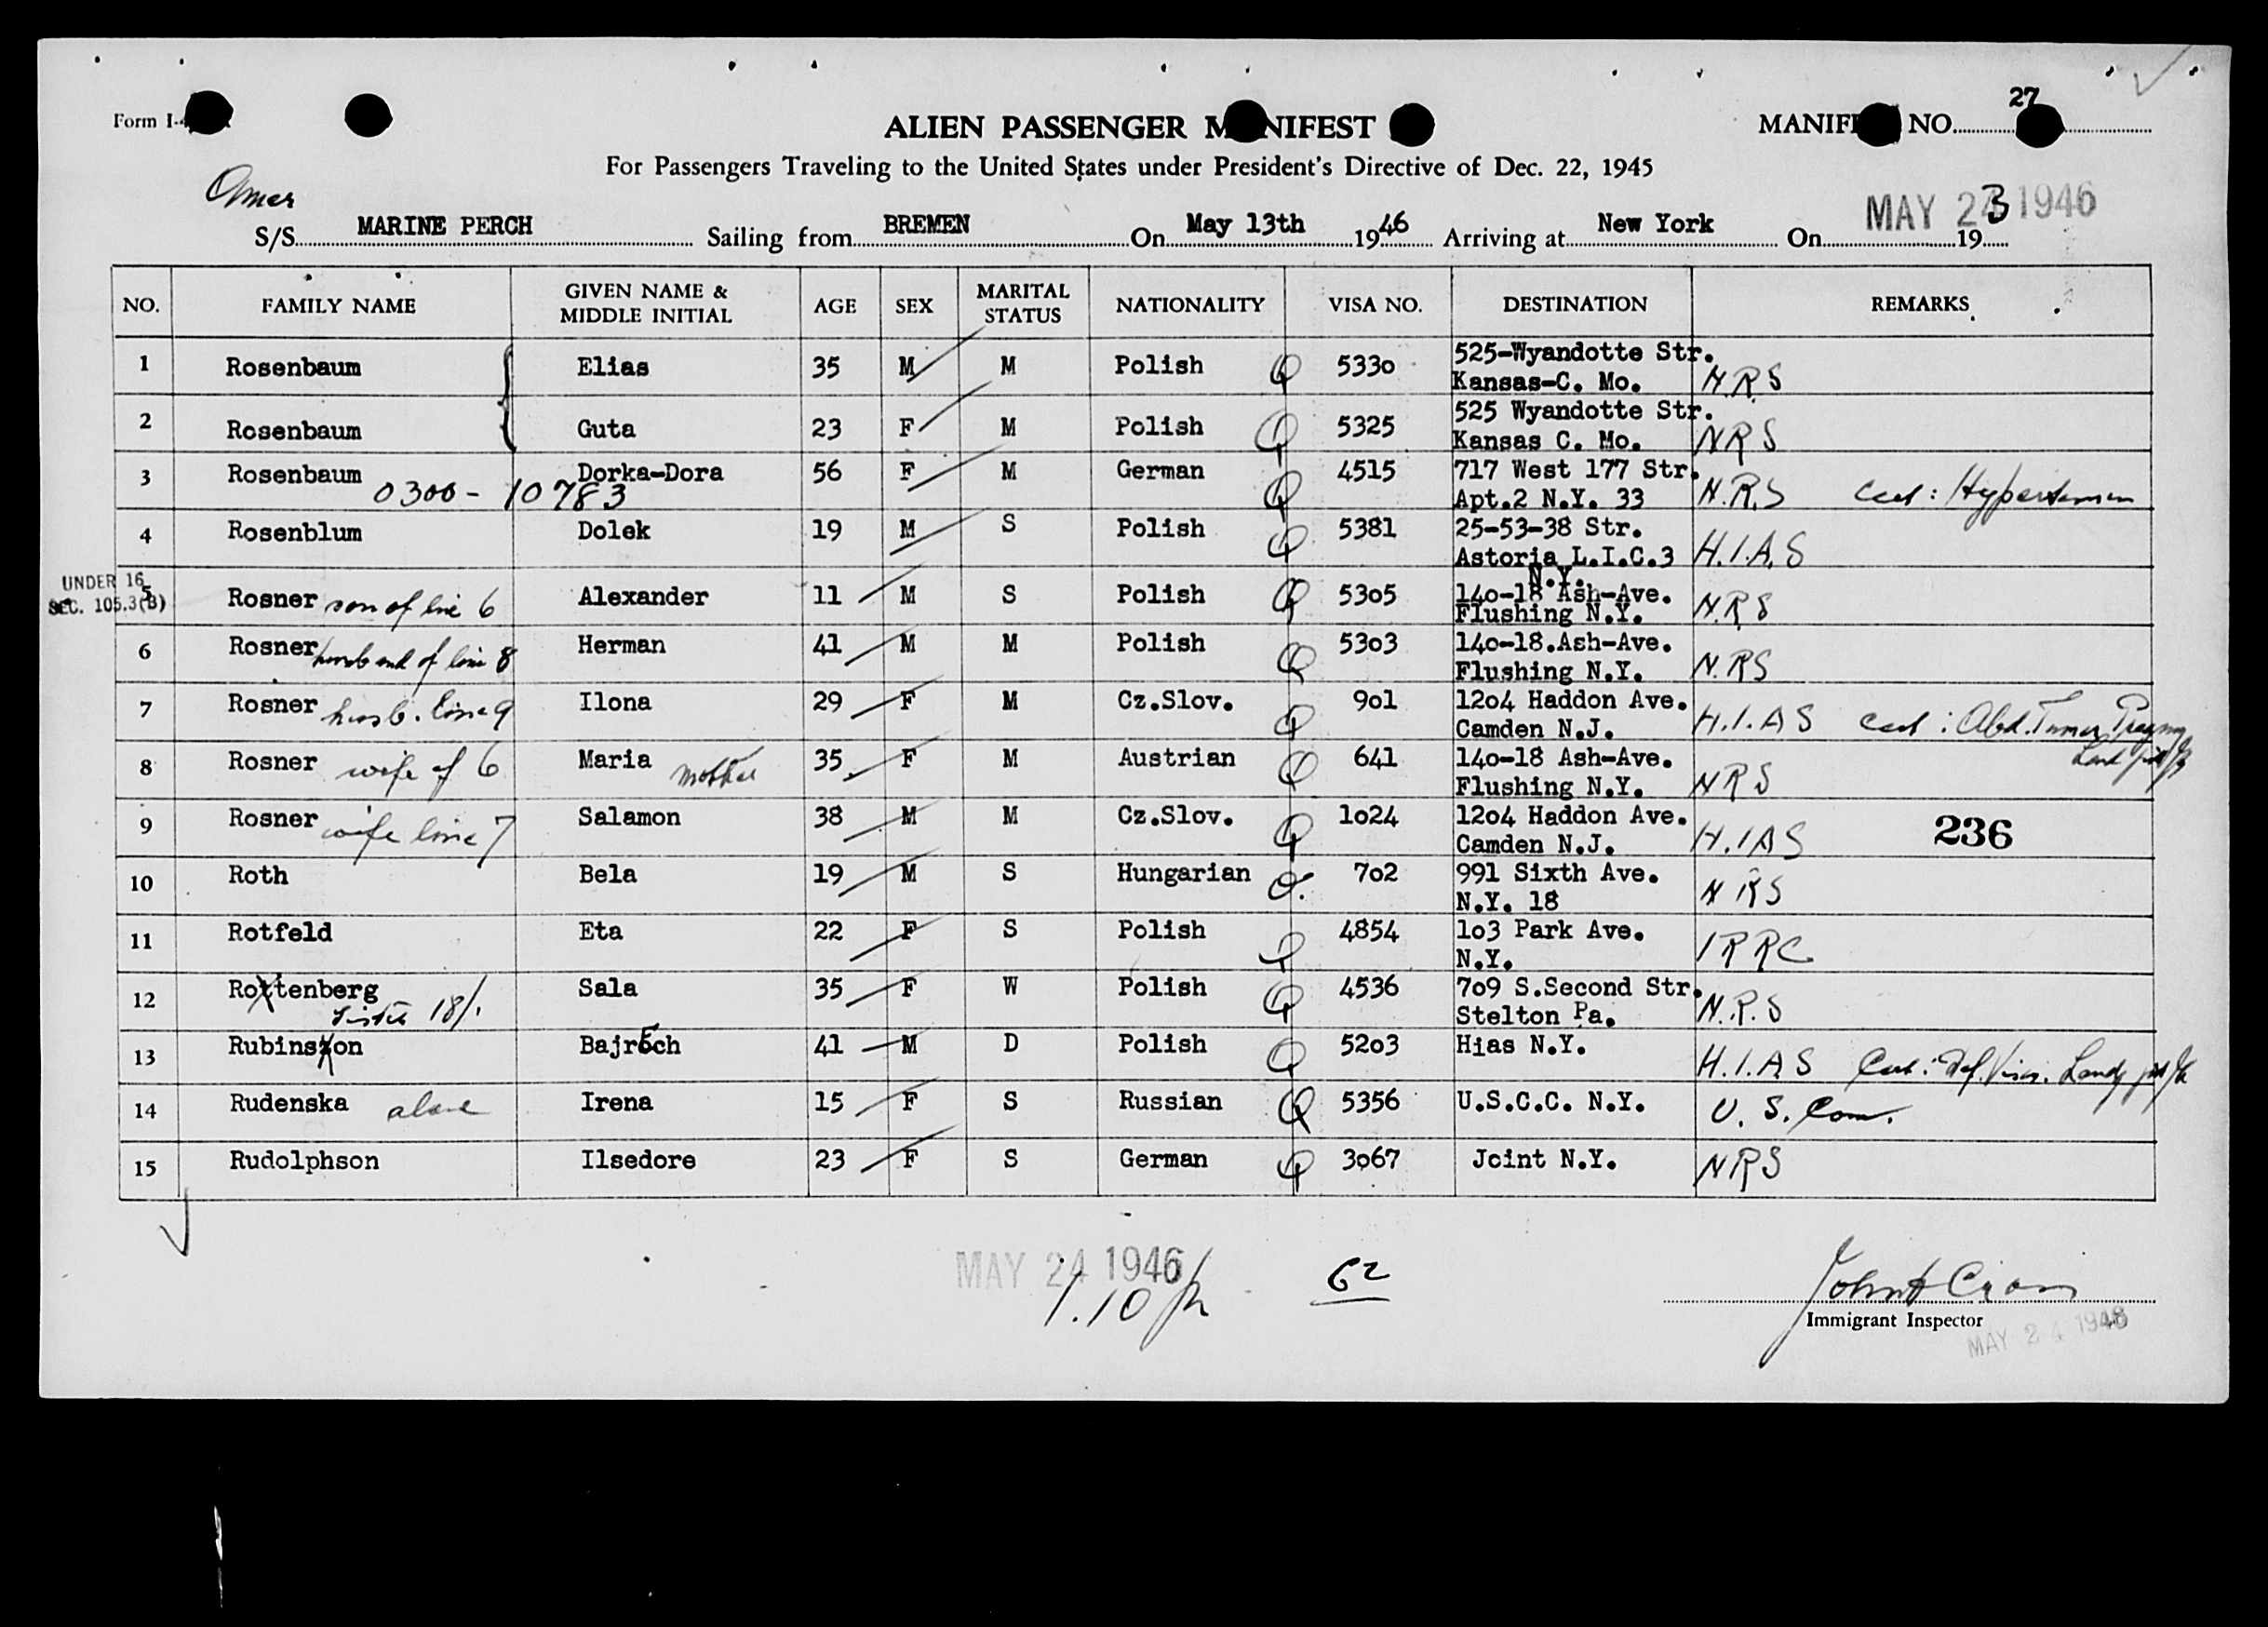 27
Form I-
ALIEN PASSENGER M NIFEST
MANIF NO.
For Passengers Traveling to the United States under President's Directive of Dec. 22, 1945
S/S MARINE PERCH Sailing from BREMEN On May 13th 1946 Arriving at New York On MAY 23 1946 19
NO. FAMILY NAME GIVEN NAME & MIDDLE INITIAL AGE SEX MARITAL STATUS NATIONALITY VISA NO. DESTINATION REMARKS
1 Rosenbaum Elias 35 M M Polish 5330 525-Wyandotte Str.
Kansas-C. Mo. N.R.S
2 Rosenbaum Guta 23 F M Polish 5325 525 Wyandotte Str.
Kansas C. Mo. NRS
3 Rosenbaum Dorka-Dora 56 F M German 4515 717 West 177 Str.
0300-10783 Apt.2 N.Y. 33 N.R.S
4 Rosenblum Dolek 19 M S Polish 5381 25-53-38 Str.
Astoria L.I.C.3 H.I.A.S
N.Y.
UNDER 16
SEC. 105.3(B)
5 Rosner son of line 6 Alexander 11 M S Polish 5305 140-18 Ash-Ave.
Flushing N.Y. N.R.S
6 Rosner husband of line 8 Herman 41 M M Polish 5303 140-18.Ash-Ave.
Flushing N.Y. N.RS
7 Rosner husb. line 9 Ilona 29 F M Cz.Slov. 901 1204 Haddon Ave.
Camden N.J. H.I.A S
8 Rosner wife of 6 Maria mother 35 F M Austrian 641 140-18 Ash-Ave.
Flushing N.Y. NRS
9 Rosner wife line 7 Salamon 38 M M Cz.Slov. 1024 1204 Haddon Ave.
Camden N.J. H.IAS 236
10 Roth Bela 19 M S Hungarian 702 991 Sixth Ave.
N.Y. 18 NRS
11 Rotfeld Eta 22 F S Polish 4854 103 Park Ave.
N.Y. IRRC
12 Rottenberg Sala 35 F W Polish 4536 709 S.Second Str.
Stelton Pa. N.R.S
13 Rubinson Bajrech 41 M D Polish 5203 Hias N.Y.
H.I.A.S
14 Rudenska alone Irena 15 F S Russian 5356 U.S.C.C. N.Y. U.S. Com.
15 Rudolphson Ilsedore 23 F S German 3067 Joint N.Y. NRS
MAY 24 1946
1.10
62
Immigrant Inspector
MAY 24 1946